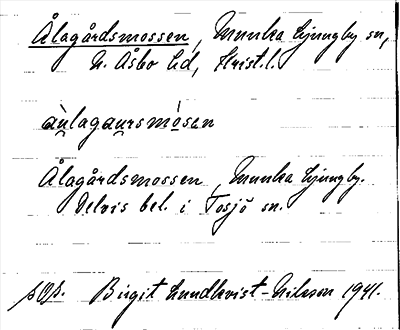 Ålagårdsmossen, Munka Ljungby sn,
N. Åsbo hd, Krist. l.
àu̯lagau̯rsmósen
Ålagårdsmossen, Munka Ljungby.
Delvis bel. i Tosjö sn.
Birgit Lundkvist-Nilsson 1941.